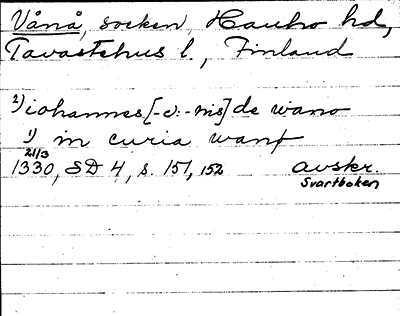 Vånå, socken, Hauho hd,
Tavastehus l., Finland
2) iohannes [-c: -nis] de wano
1) in curia wanø
21/3
1330, SD 4, s. 151, 152 avskr.
Svartboken